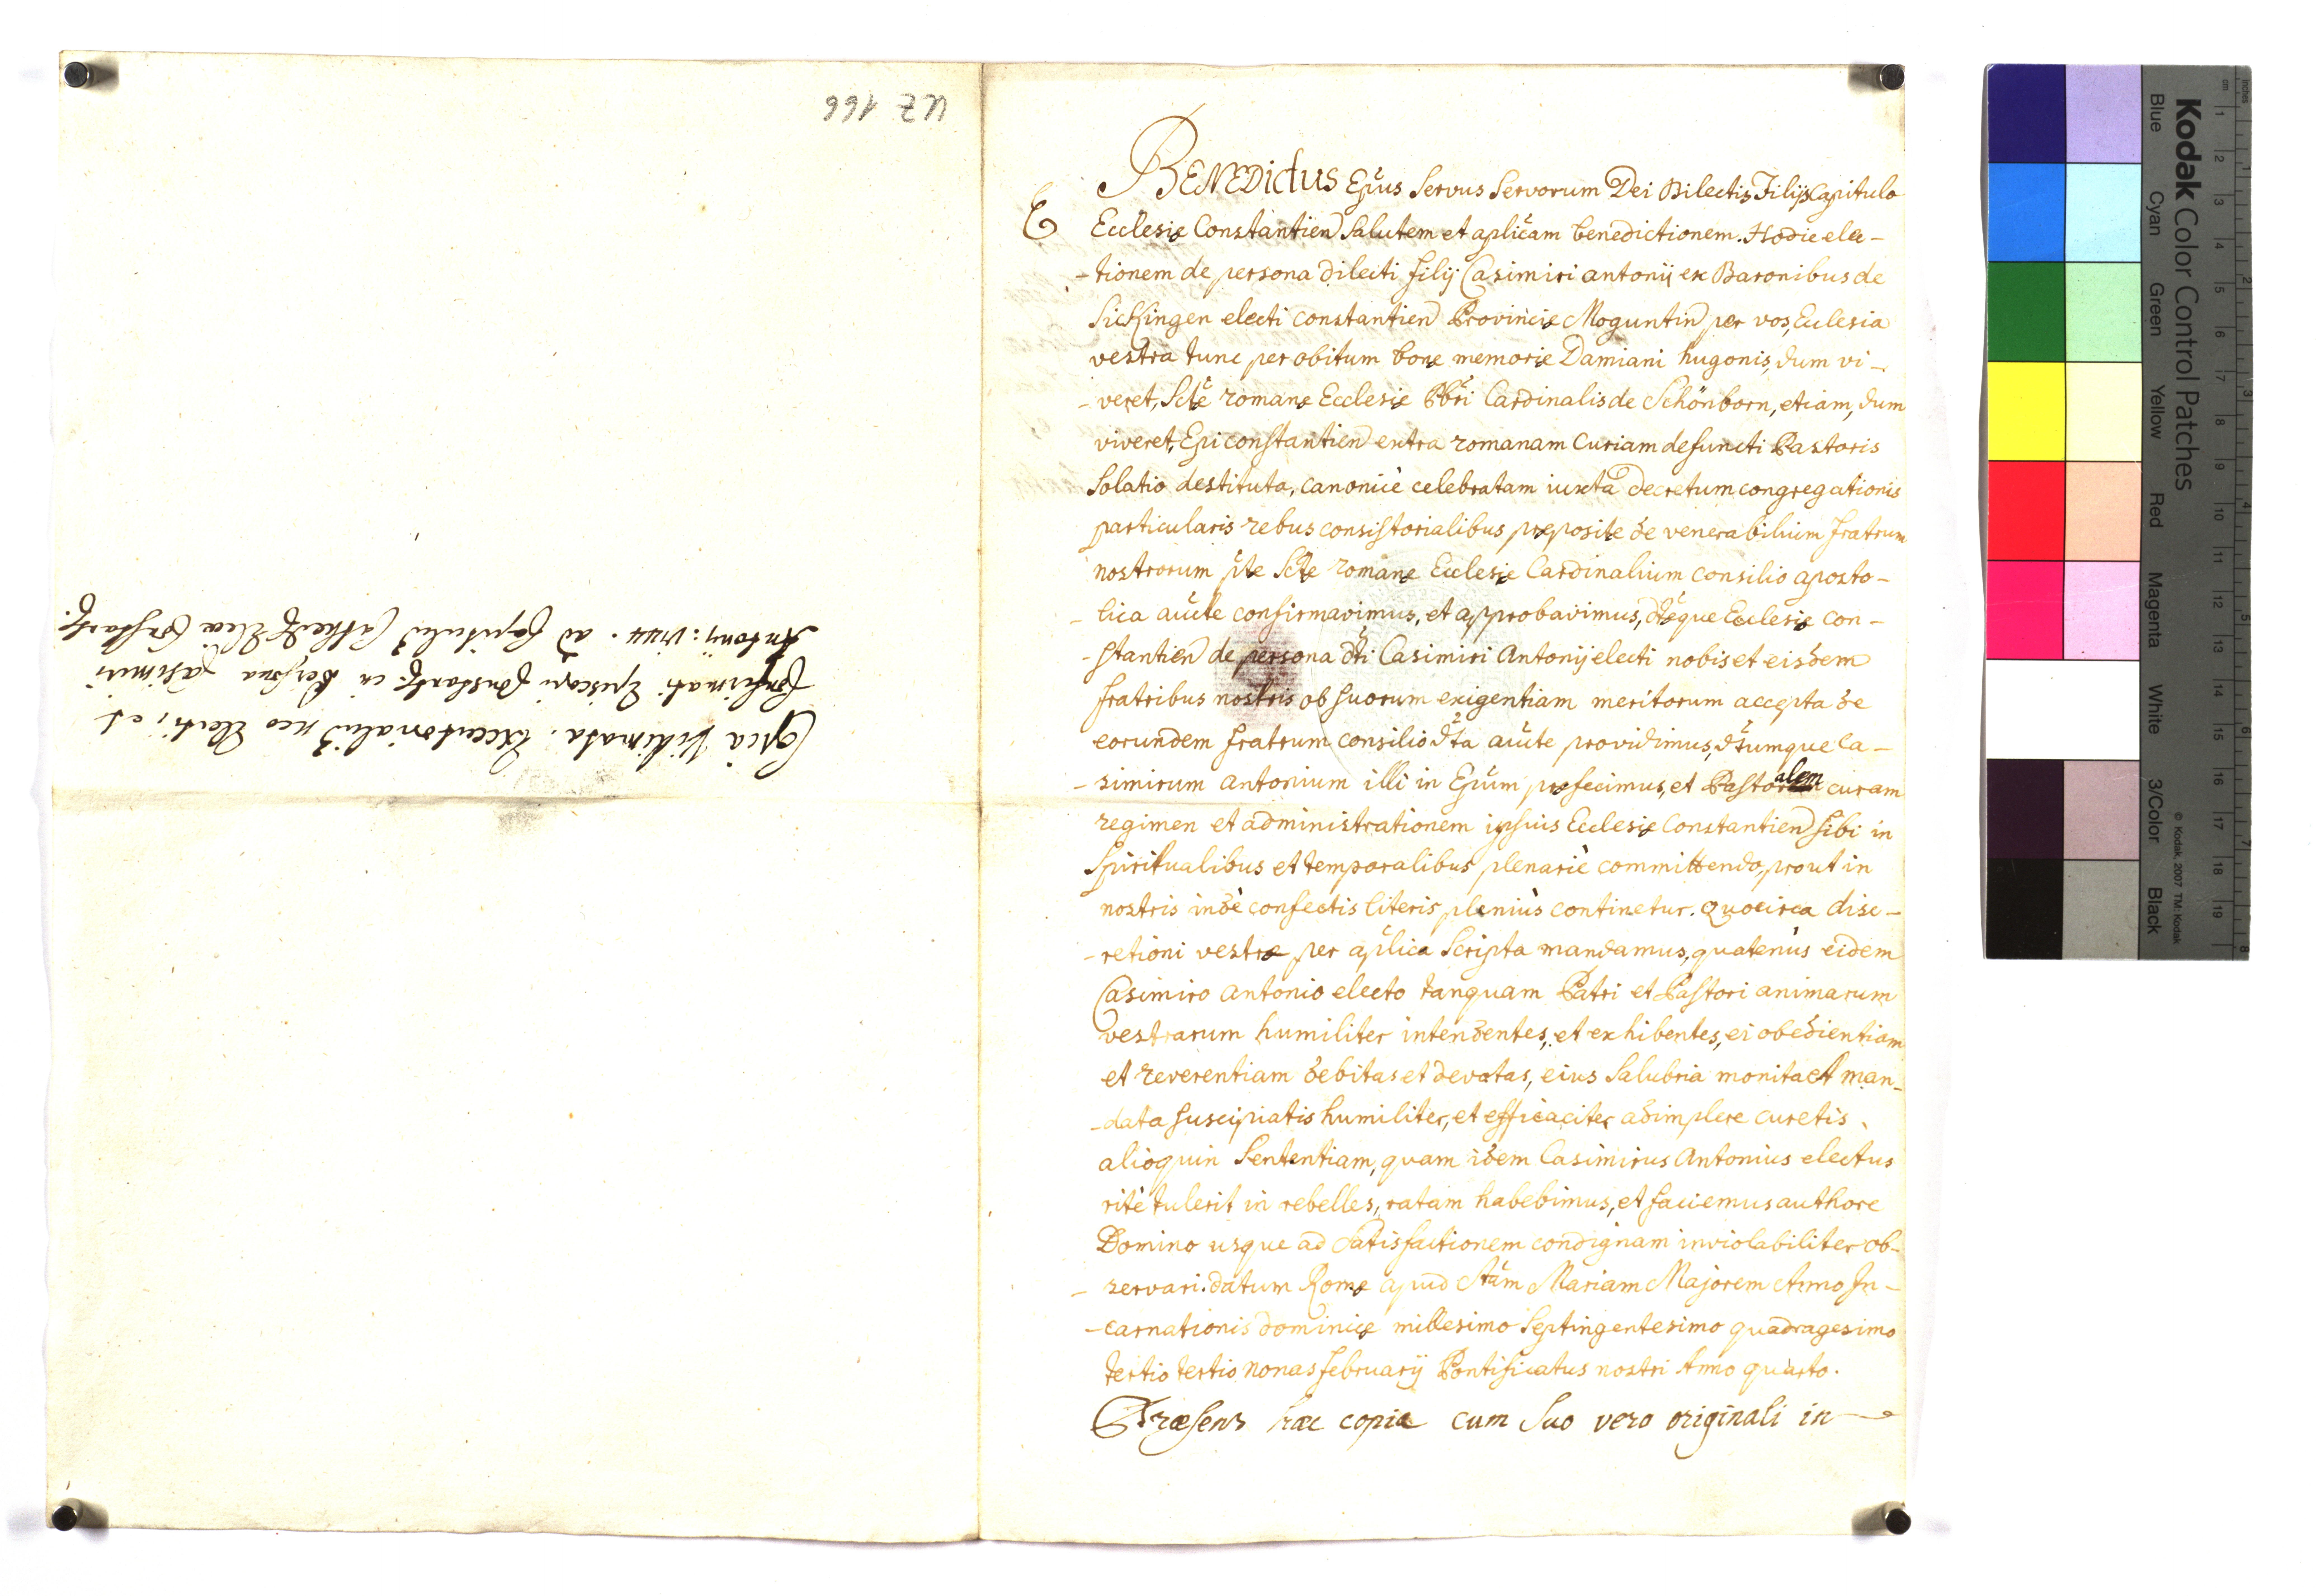 UZ 166
Copia Vidimata. Executorialiū neo Electi, et
Confirmati Episcopi Constant: in Persona Casimiri
Antonij: 1744. ad Capitulū Cathed: Eccl.ae Constant:
E
BENEDictus Ep̃us Servus Servorum Dei Dilectis Filijs Capitulo
Ecclesię Constantien Salutem et aplicam benedictionem. Hodie elec-
-tionem de persona dilecti filij Casimiri antonij ex Baronibus de
Sickingen electi constantien Provincię Moguntin per vos, Ecclesia
vestra tunc per obitum bonę memorię Damiani hugonis, dum vi-
-veret, Sctę romanę Ecclesię Pbri Cardinalis de Schönborn, etiam, dum
viveret, Epi constantien extra romanam Curiam defuncti Pastoris
Solatio destituta, canonicè celebratam iuxta decretum congregationis
particularis rebus consistorialibus pręposite de venerabilium fratrum
nostrorum ptę Sctę romanę Ecclesię Cardinalium consilio aposto-
-lica aucte confirmavimus, et approbavimus, dtęque Ecclesię con-
-stantien de persona dti Casimiri Antonij electi nobis et eisdem
fratribus nostris ob suorum exigentiam meritorum accepta de
eorundem fratrum consilio dta aucte providimus, dtumque Ca-
-simirum antonium illi in Epum pręfecimus, et Pastoralem curam
regimen et administrationem ipsius Ecclesię Constantien sibi in
Spiritualibus et temporalibus plenariè committendo, prout in
nostris indè confectis literis plenius continetur. Quocirca disc-
-retioni vestrę per aplica Scripta mandamus, quatenus eidem
Casimiro Antonio electo tanquam Patri et Pastori animarum
vestrarum humiliter intendentes, et exhibentes, ei obedientiam
et reverentiam debitas et devotas, eius Salubria monita et man-
-data suscipiatis humiliter, et efficaciter adimplere curetis,
alioquin Sententiam, quam idem Casimirus Antonius electus
ritè tulerit in rebelles, ratam habebimus, et faciemus authore
Domino usque ad Satisfactionem condignam inviolabiliter ob-
-servari. datum Romę apud Stam Mariam Majorem Anno In-
-carnationis dominicę millesimo Septingentesimo quadragesimo
tertio tertio nonas februarij Pontificatus nostri Anno quarto.
Præsens hæc copia cum Suo vero originali in
Kodak Color Control Patches
Blue Cyan Green Yellow Red Magenta White 3/Color Black
© Kodak, 2007 TM: Kodak
inches 1 2 3 4 5 6 7 8
cm 1 2 3 4 5 6 7 8 9 10 11 12 13 14 15 16 17 18 19